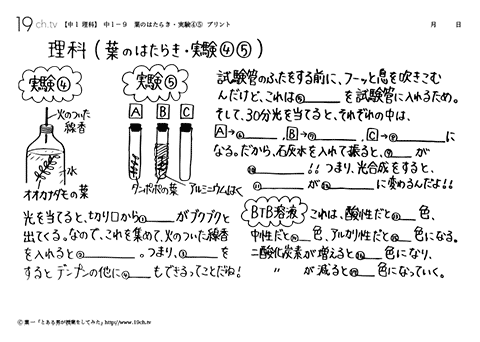 19ch.tv 【中1 理科】 中1-9 葉のはたらき・実験④⑤ プリント 月 日
理科(葉のはたらき・実験④⑤)
実験④
火のついた
線香
水
オオカナダモの葉
光を当てると、切り口から①___がブクブクと
出てくる。なので、これを集めて、火のついた線香
を入れると②___。つまり、③___を
するとデンプンの他に④___もできるってことだね!
実験⑤
A B C
タンポポの葉 アルミニウムはく
試験管のふたをする前に、フーッと息を吹きこむ
んだけど、これは⑤___を試験管に入れるため。
そして、30分光を当てると、それぞれの中は、
A→⑥___, B→⑦___, C→⑧___に
なる。だから、石灰水を入れて振ると、⑨___が
⑩___!! つまり、光合成をすると、
⑪___が⑫___に変わるんだよ!!
BTB溶液 これは、酸性だと⑬___色、
中性だと⑭___色、アルカリ性だと⑮___色になる。
二酸化炭素が増えると⑯___色になり、
〃 が減ると⑰___色になっていく。
Ⓒ 葉一「とある男が授業をしてみた」http://www.19ch.tv